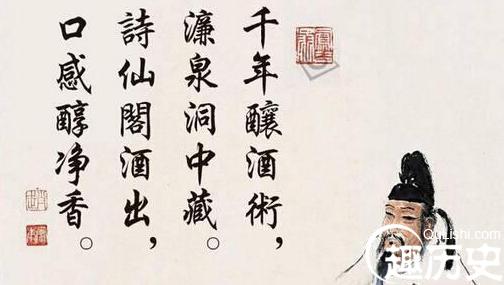 千年釀酒術，
濂泉洞中藏。
詩仙閣酒出，
口感醇净香。
QuLishi.com
趣历史